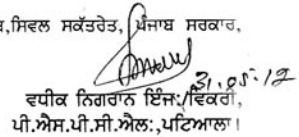 ਸਿਵਲ ਸਕੱਤਰੇਤ, ਪੰਜਾਬ ਸਰਕਾਰ,
31.05.12
ਵਧੀਕ ਨਿਗਰਾਨ ਇੰਜ:/ਵਿਕਰੀ,
ਪੀ.ਐਸ.ਪੀ.ਸੀ.ਐਲ:,ਪਟਿਆਲਾ।